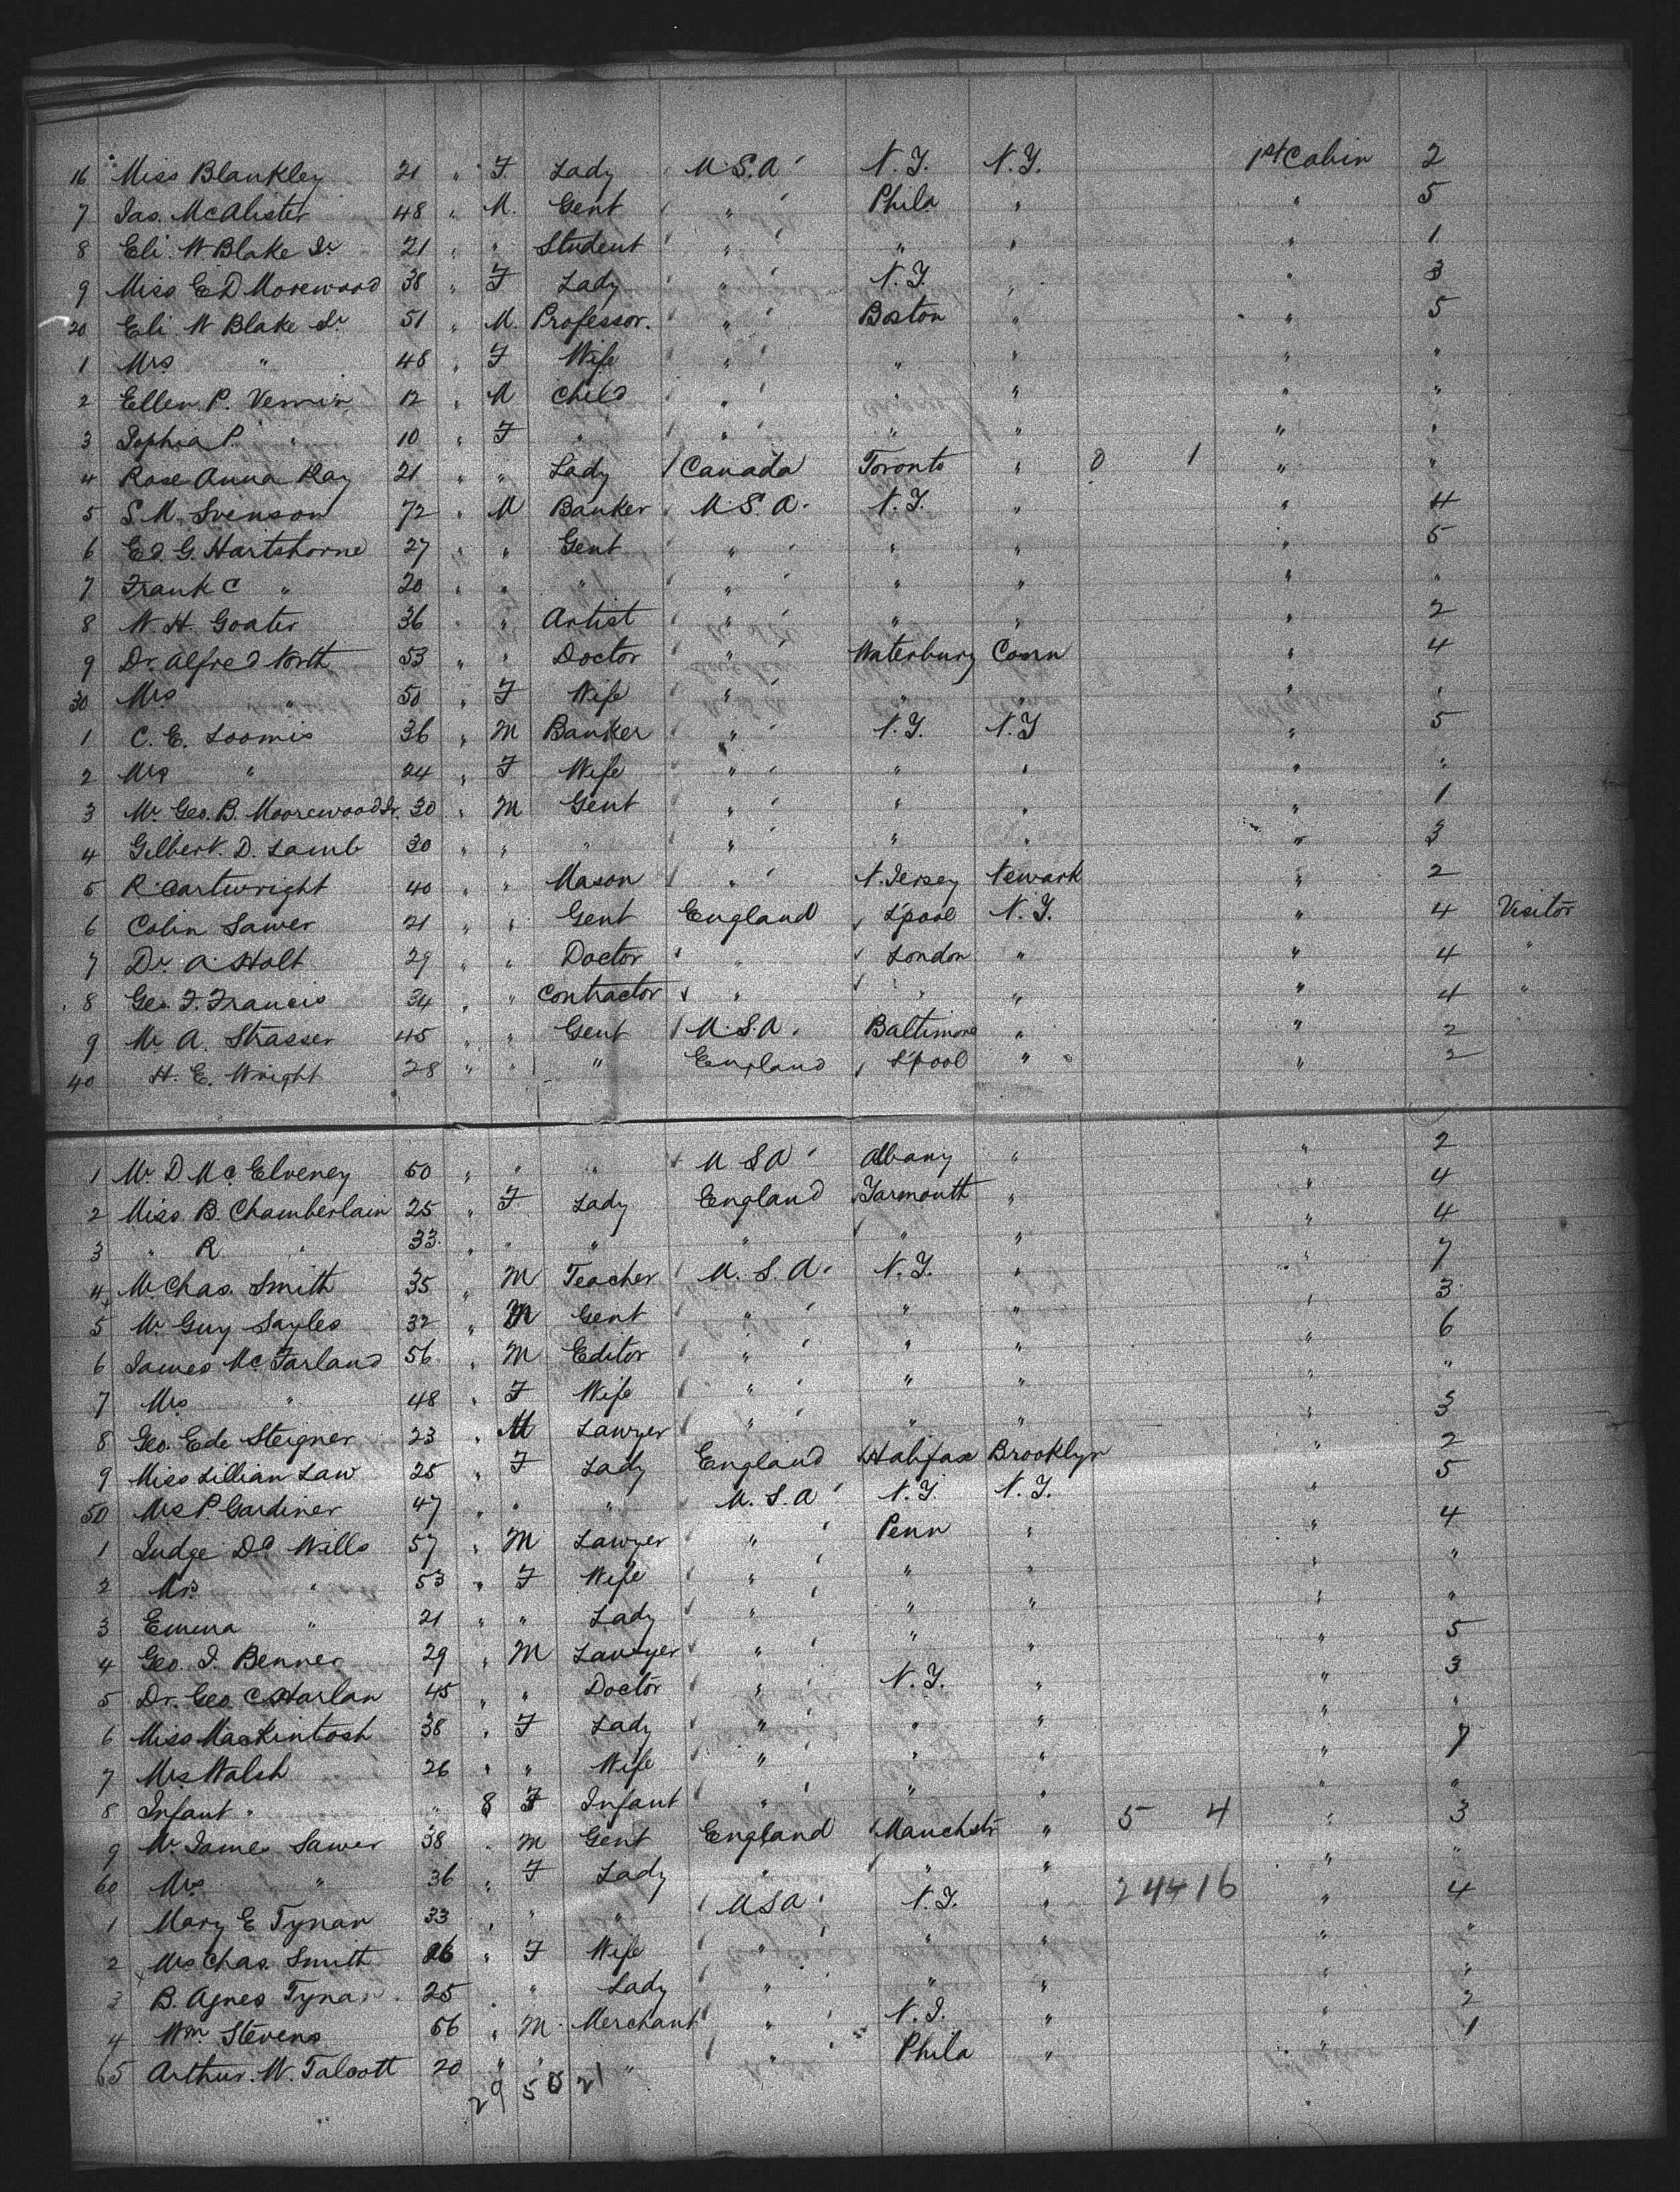 16 Miss Blankley 21 " F Lady U.S.A N.Y. N.Y. 1st Cabin 2
7 Jas. McAlister 48 " M. Gent " Phila " " 5
8 Eli. W Blake Jr 21 " " Student " " " " 1
9 Miss E D Morewood 38 " F Lady " N.Y. " " 3
20 Eli W Blake Sr 51 " M. Professor. " Boston " " 5
1 Mrs " 48 " F Wife " " " " "
2 Ellen P. 12 " M Child " " " " "
3 Sophia P. " 10 " F " " " " " "
4 Rose Anna Ray 21 " " Lady Canada Toronto " 0 1 " "
5 S. M. Svenson 72 " M Banker U.S.A. N.Y. " " 4
6 Ed. G. Hartshorne 27 " " Gent " " " " 5
7 Frank C " 20 " " " " " " " "
8 W. H. Goater 36 " " Artist " " " " 2
9 Dr. Alfred North 53 " " Doctor " Waterbury Conn " 4
30 Mrs " 50 " F Wife " " " " "
1 C. E. Loomis 36 " M Banker " N.Y. N.Y " 5
2 Mrs " 24 " F Wife " " " " "
3 Mr Geo. B. Moorewood Jr. 30 " M Gent " " " " 1
4 Gilbert. D. Lamb 30 " " " " " " " 3
5 R. Cartwright 40 " " Mason " N. Jersey Newark " 2
6 Colin Sawer 21 " " Gent England L'pool N.Y. " 4 Visitor
7 Dr. A. Holt 29 " " Doctor " London " " 4 "
8 Geo. F. Francis 34 " " Contractor " " " " 4 "
9 Mr A. Strasser 45 " " Gent U.S.A. Baltimore " " 2
40 H. E. Wright 28 " " " England L'pool " " 2
1 Mr. D Mc Elveney 50 " " " U S A Albany " " 2
2 Miss. B. Chamberlain 25 " F Lady England Yarmouth " " 4
3 " R. " 33 " " " " " " " 4
4 Mr Chas. Smith 35 " M Teacher U.S.A. N.Y. " " 7
5 Mr Guy Sayles 32 " M Gent " " " " 3
6 James Mc Farland 56 " M Editor " " " " 6
7 Mrs " 48 " F Wife " " " " "
8 Geo. Ede Steigner 23 " M Lawyer " " " " 3
9 Miss Lillian Law 25 " F Lady England Halifax Brooklyn " 2
50 Mrs P. Gardiner 47 " " " U.S.A N.Y. N.Y. " 5
1 Judge D.A Wills 57 " M Lawyer " Penn " " 4
2 Mrs " 53 " F Wife " " " " "
3 Emma " 21 " " Lady " " " " "
4 Geo. J. Benner 29 " M Lawyer " " " " 5
5 Dr. Geo. C. Harlan 45 " " Doctor " N.Y. " " 3
6 Miss Mackintosh 38 " F Lady " " " " "
7 Mrs Walsh 26 " " Wife " " " " 7
8 Infant " " 8 F Infant " " " " "
9 Mr. James Sawer 38 " M Gent England Manchstr " 5 4 " 3
60 Mrs " 36 " F Lady " " " " "
1 Mary E Tynan 33 " " " U S A N.Y. " 24 16 " 4
2 Mrs Chas. Smith 26 " F Wife " " " " "
3 B. Agnes Tynan 25 " " Lady " " " " "
4 Wm. Stevens 56 " M Merchant " N.J. " " 2
65 Arthur. W. Talcott 20 " " " " Phila " " 1
29 50 21